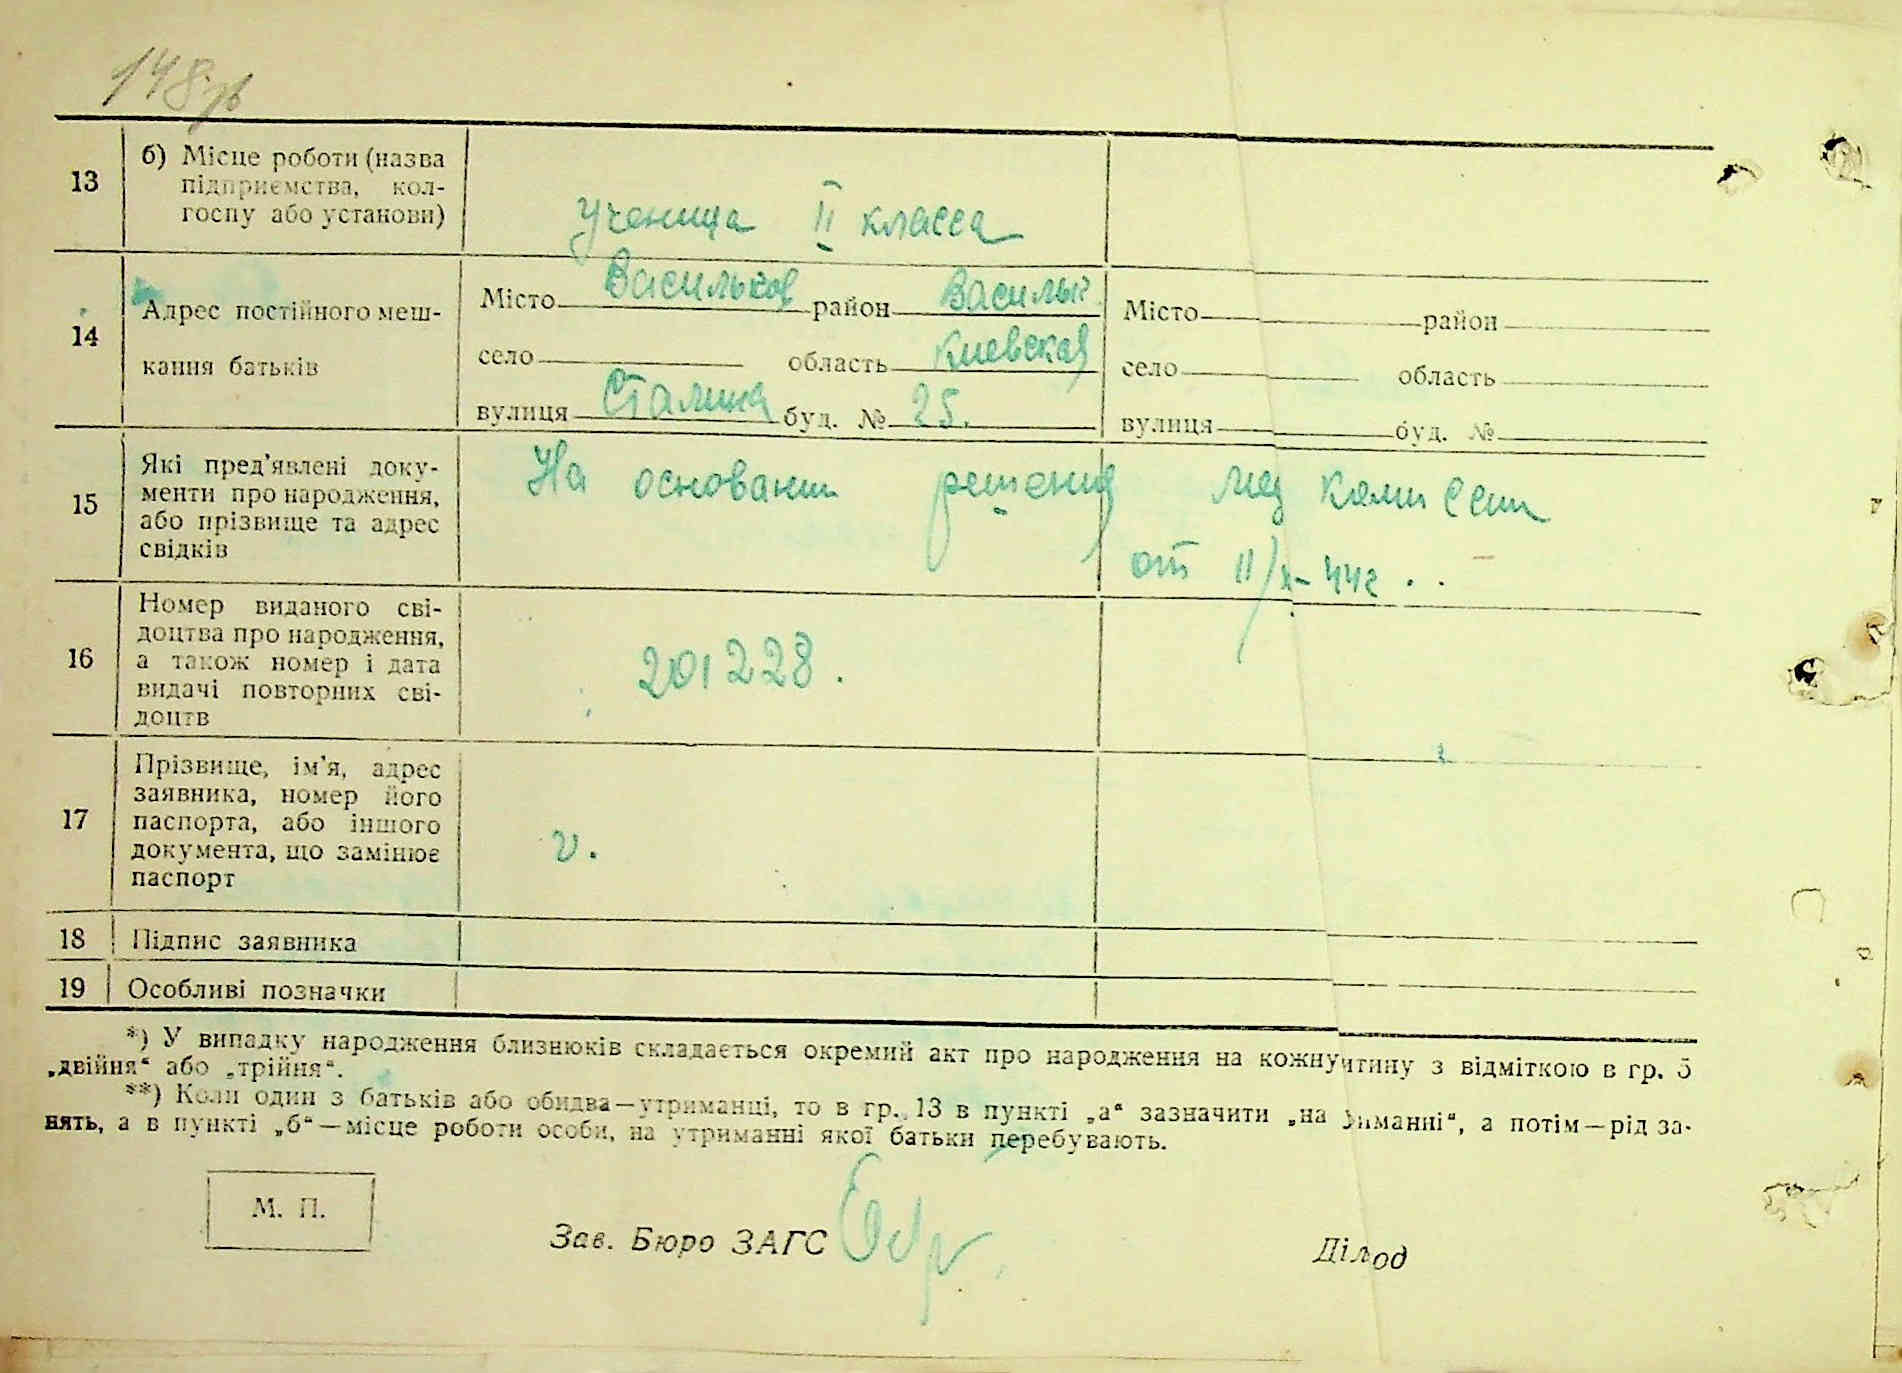 148 зв
13 б) Місце роботи (назва
підприємства, кол-
госпу або установи)
ученица II класса
14 Адрес постійного меш-
кання батьків
Місто Васильков район Васильк. Місто район
село область Киевская село область
вулиця Сталина буд. № 25. вулиця буд. №
15 Які пред'явлені доку-
менти про народження,
або прізвище та адрес
свідків
На основании решения мед комиссии
от 11/X-44г.
16 Номер виданого сві-
доцтва про народження,
а також номер і дата
видачі повторних сві-
доцтв
201228.
17 Прізвище, ім'я, адрес
заявника, номер його
паспорта, або іншого
документа, що замінює
паспорт
18 Підпис заявника
19 Особливі позначки
*) У випадку народження близнюків складається окремий акт про народження на кожну тину з відміткою в гр. 5
„двійня“ або „трійня“.
**) Коли один з батьків або обидва—утриманці, то в гр. 13 в пункті „а“ зазначити „на иманні“, а потім—рід за-
нять, а в пункті „б“—місце роботи особи, на утриманні якої батьки перебувають.
М. П.
Зав. Бюро ЗАГС
Діловод